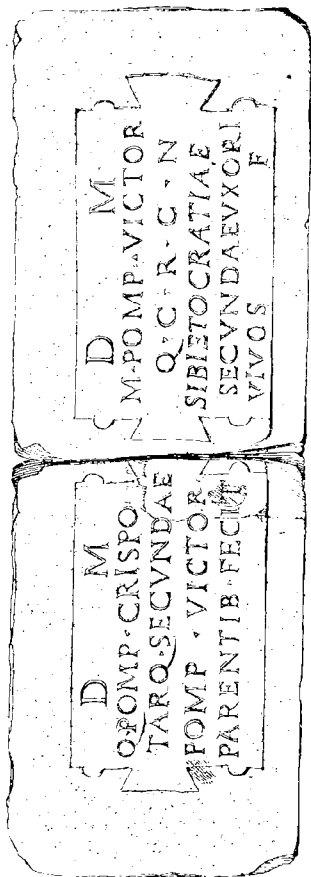 D M
Q·POMP·CRISPO
TARQ·SECVNDAE
POMP · VICTOR
PARENTIB·FECIT
D M
M·POMP·VICTOR
Q·C·R·C·N
SIBIETOCRATIAE
SECVNDAEVXORI
VIVOS F